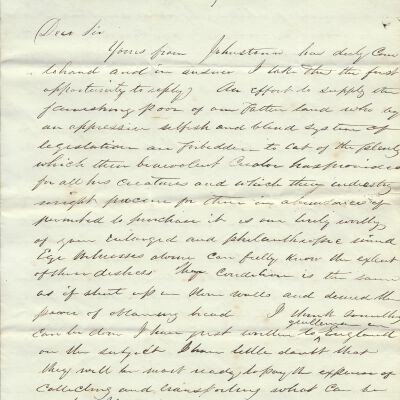 Dear Sir
Yours from Johnstown has duly Com
tohand and in answer I take the the first
opportunity to reply) An effort to supply the
famishing poor of our Father land who by
an oppressive selfish and blind system of
legislation are forbidden to eat of the plenty
which their benevolent Creator has provided
for all his creatures and which their industry
might procure for them in abundance if
permitted to purchase it is one truly worthy
of your Enlarged and philanthropic mind
Eye witnesses alone can fully know the extent
of their distress They Condition is the same
as if shut up in their walls and denied the
power of obtaining bread I think something
gentlemen in
can be done I have just written to England
on the subject I have little doubt that
they will be most ready to pay the expense of
collecting and transporting what can be